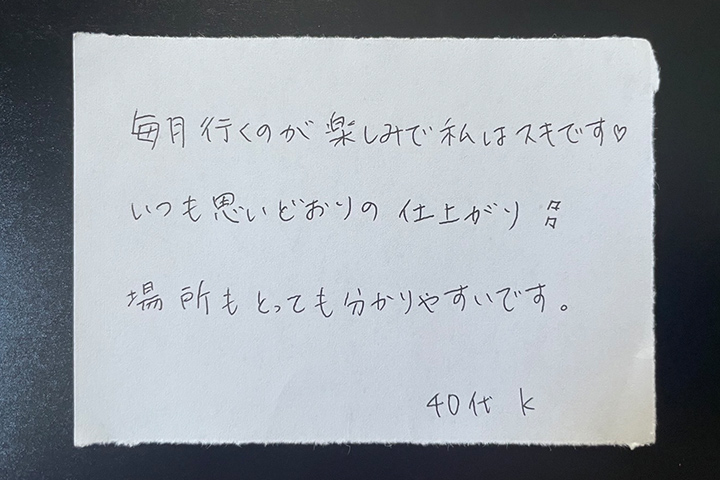 毎月行くのが楽しみで私はスキです♡
いつも思いどおりの仕上がり
場所もとっても分かりやすいです。
40代 K